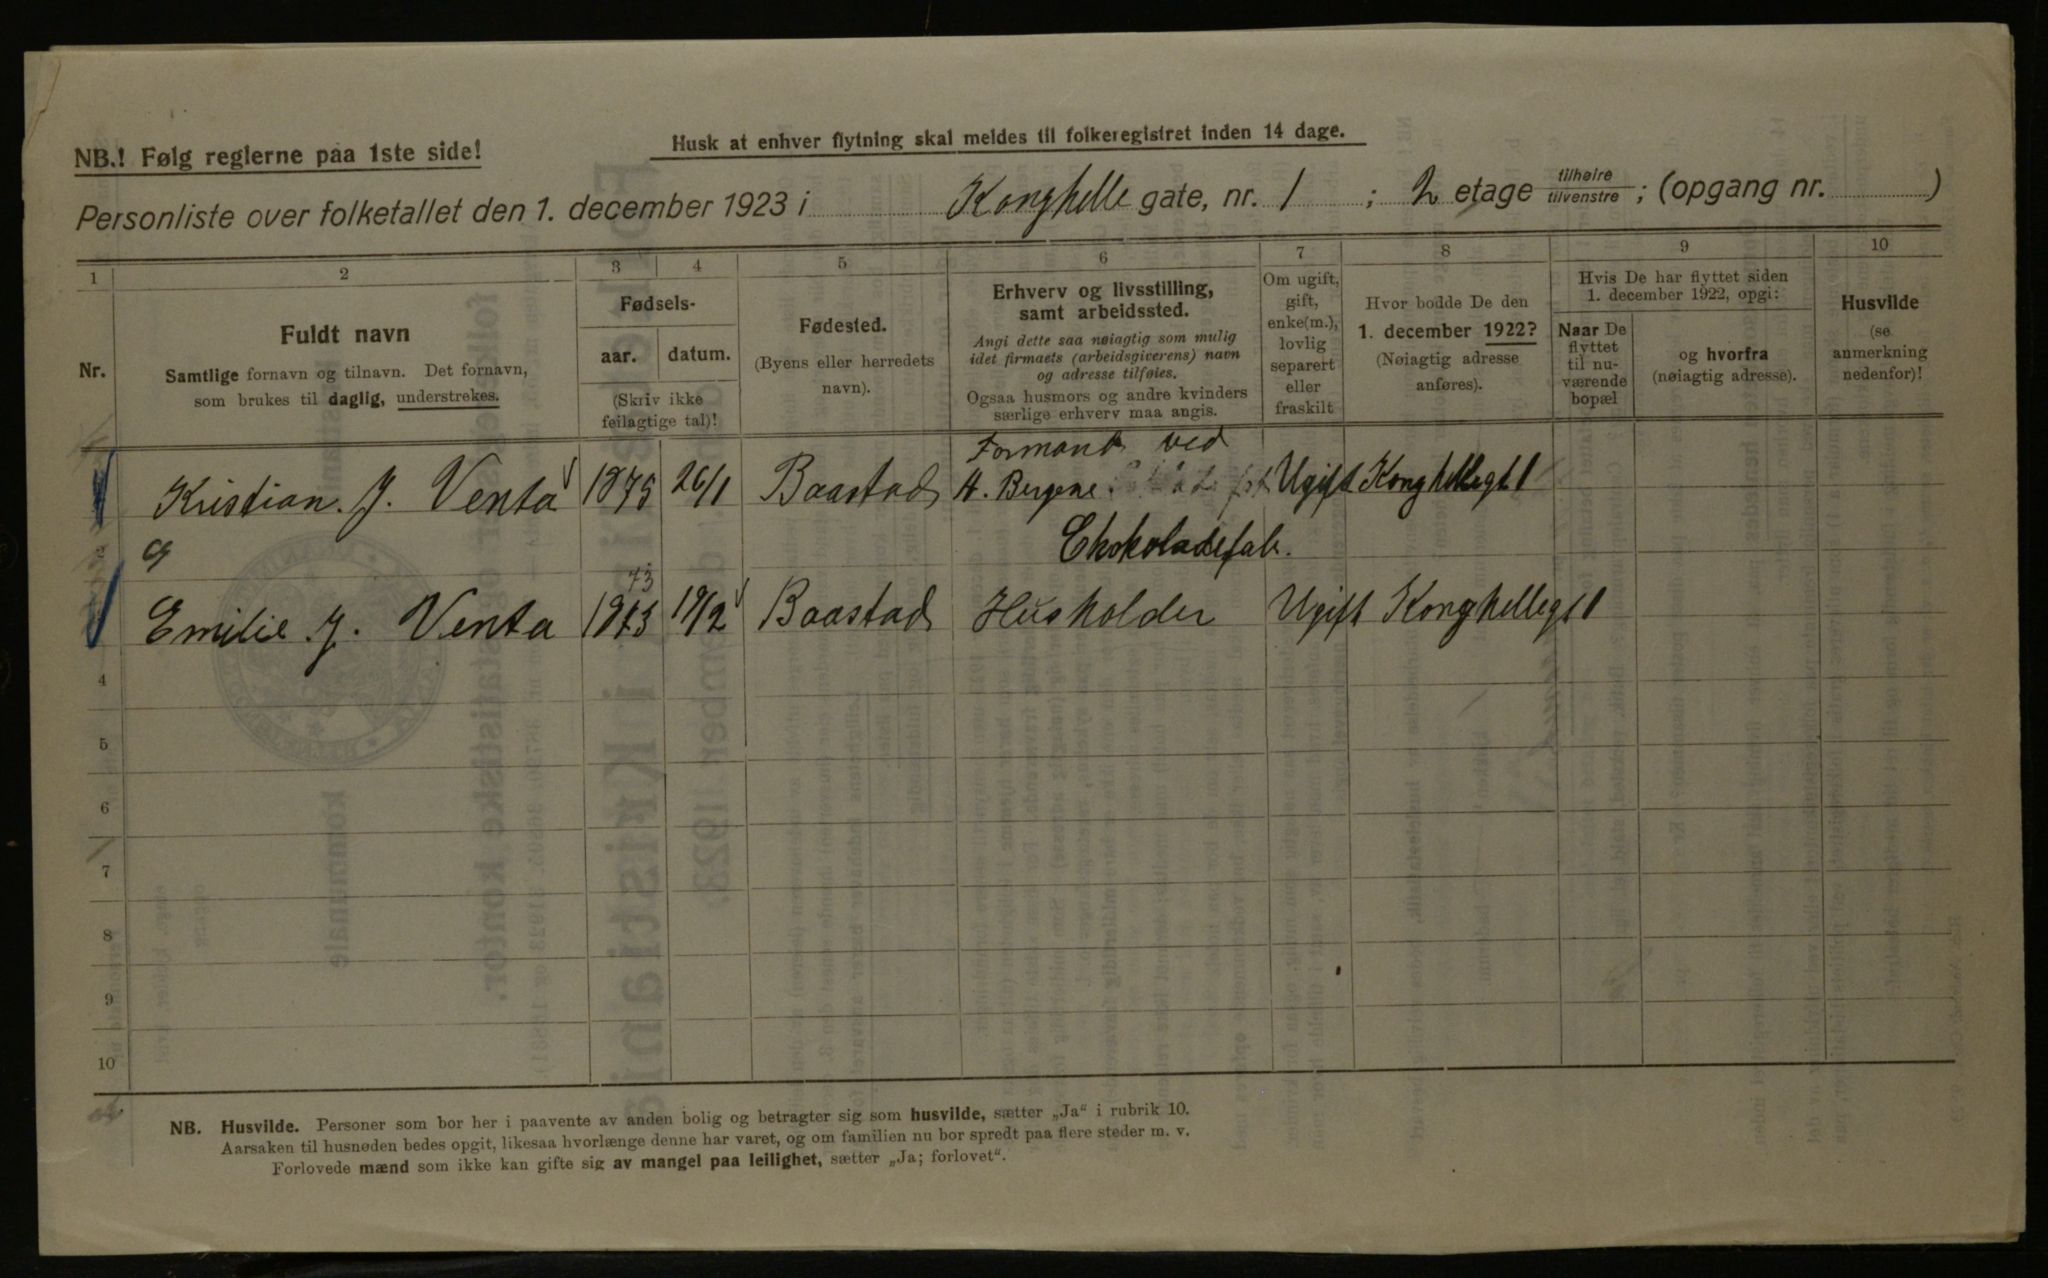 NB.! Følg reglerne paa 1ste side!
Husk at enhver flytning skal meldes til folkeregistret inden 14 dage.
Personliste over folketallet den 1. december 1923 i Konghelle gate, nr. 1 ; 2 etage tilhøire tilvenstre ; (opgang nr. )
1 2 3 4 5 6 7 8 9 10
Nr.
Fuldt navn
Samtlige fornavn og tilnavn. Det fornavn,
som brukes til daglig, understrekes.
Fødsels-
aar. datum.
(Skriv ikke
feilagtige tal)!
Fødested.
(Byens eller herredets
navn).
Erhverv og livsstilling,
samt arbeidssted.
Angi dette saa nøiagtig som mulig
idet firmaets (arbeidsgiverens) navn
og adresse tilføies.
Ogsaa husmors og andre kvinders
særlige erhverv maa angis.
Om ugift,
gift,
enke(m.),
lovlig
separert
eller
fraskilt
Hvor bodde De den
1. december 1922?
(Nøiagtig adresse
anføres).
Hvis De har flyttet siden
1. december 1922, opgi:
Naar De
flyttet
til nu-
værende
bopæl
og hvorfra
(nøiagtig adresse).
Husvilde
(se
anmerkning
nedenfor)!
Formand ved
Kristian. J. Venta 1875 26/1 Baastad H. Bergene Ugift Konghellegt 1
2 Chokoladefab.
73
Emilie J. Venta 1873 19/2 Baastad Husholder Ugift Konghellegt 1
4
5
6
7
8
9
10
NB. Husvilde. Personer som bor her i paavente av anden bolig og betragter sig som husvilde, sætter „Ja“ i rubrik 10.
Aarsaken til husnøden bedes opgit, likesaa hvorlænge denne har varet, og om familien nu bor spredt paa flere steder m. v.
Forlovede mænd som ikke kan gifte sig av mangel paa leilighet, sætter „Ja; forlovet“.